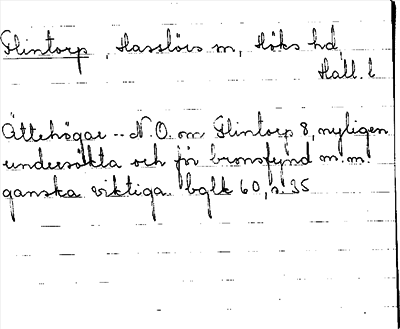 Flintorp, Hasslövs m, Höks hd,
Hall. l
Ättehögar -- N.O. om Flintorp 8, nyligen
undersökta och för bronsfynd m. m.
ganska viktiga. bglk 60, s. 35